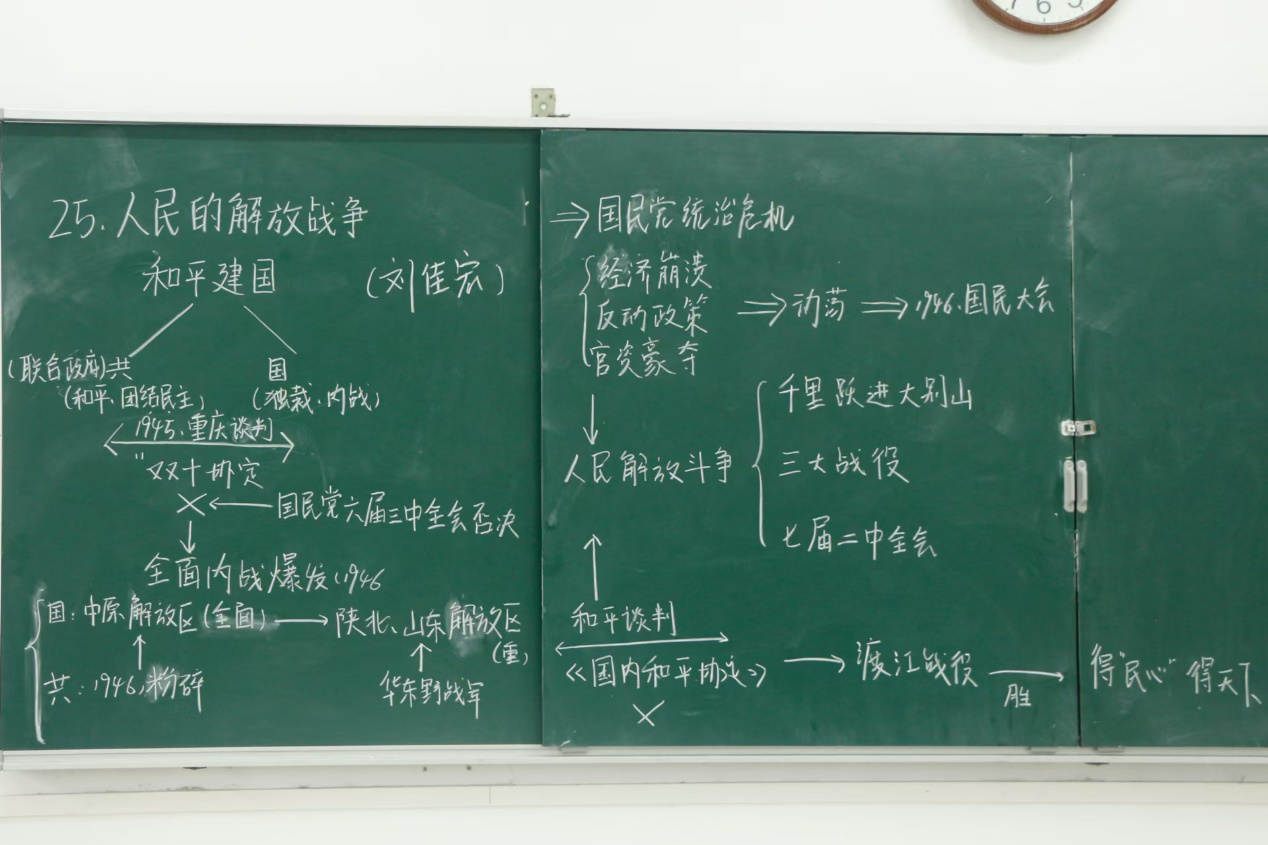 25.人民的解放战争
和平建国 (刘佳宏)
(联合政府)共 国
(和平、团结民主) (独裁、内战)
1945、重庆谈判
"双十协定
× ← 国民党六届二中全会否决
↓
全面内战爆发、1946
国:中原解放区(全面) → 陕北、山东解放区
(重)
↑ ↑
共:1946,粉碎 华东野战军
⇒国民党统治危机
经济崩溃
反动政策 ⇒动荡⇒1946.国民大会
官资豪夺
↓
人民解放斗争
千里跃进大别山
三大战役
七届二中全会
↑
和平谈判
《国内和平协定》 → 渡江战役 → 得"民心"得天下
胜
×
7 6 5